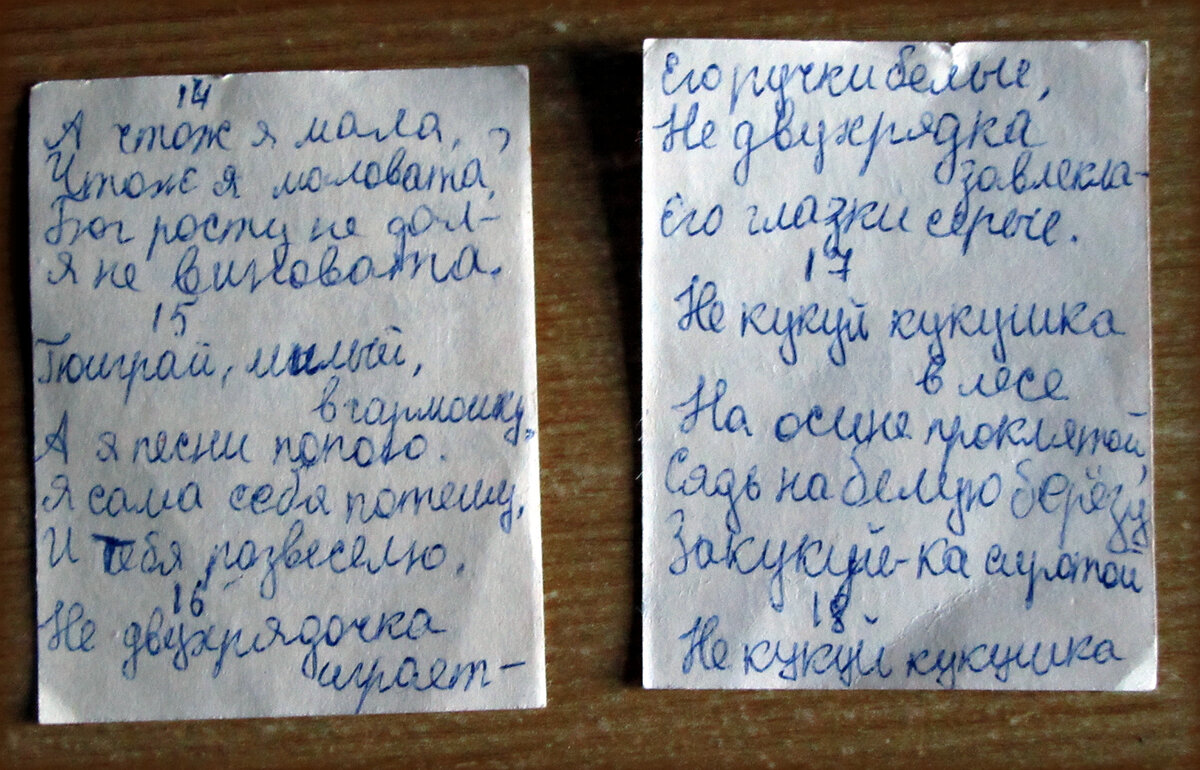 14
А чтож я мала,
Чтож я маловата?
Бог росту не дал-
я не виновата.
15
Поиграй, милый,
в гармошку,
А я песни попою.
Я сама себя потешу,
И тебя развеселю.
16
Не двухрядочка
играет-
Его ручки белые,
Не двухрядка
завлекла-
Его глазки серые.
17
Не кукуй кукушка
в лесе
На осине проклятой,
Сядь на белую берёзу
Закукуй-ка сиротой
18
Не кукуй кукушка